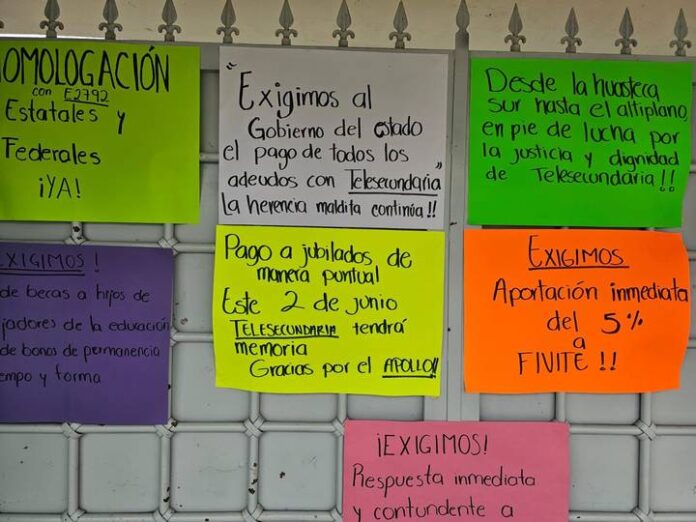 HOMOLOGACIÓN
con E2792
Estatales y
Federales
¡YA!
"Exigimos al
Gobierno del estado
el pago de todos los
adeudos con Telesecundaria"
La herencia maldita continúa!!
Desde la huasteca
sur hasta el altiplano,
en pie de lucha por
la justicia y dignidad
de Telesecundaria!!
EXIGIMOS!
de becas a hijos de
jadores de la educación
de bonos de permanencia
empo y forma
Pago a jubilados de
manera puntual
Este 2 de junio
TELESECUNDARIA tendrá
memoria
Gracias por el APOLLO!!
EXIGIMOS
Aportación inmediata
del 5%
a
FIVITE!!
¡EXIGIMOS!
Respuesta inmediata
y contundente a